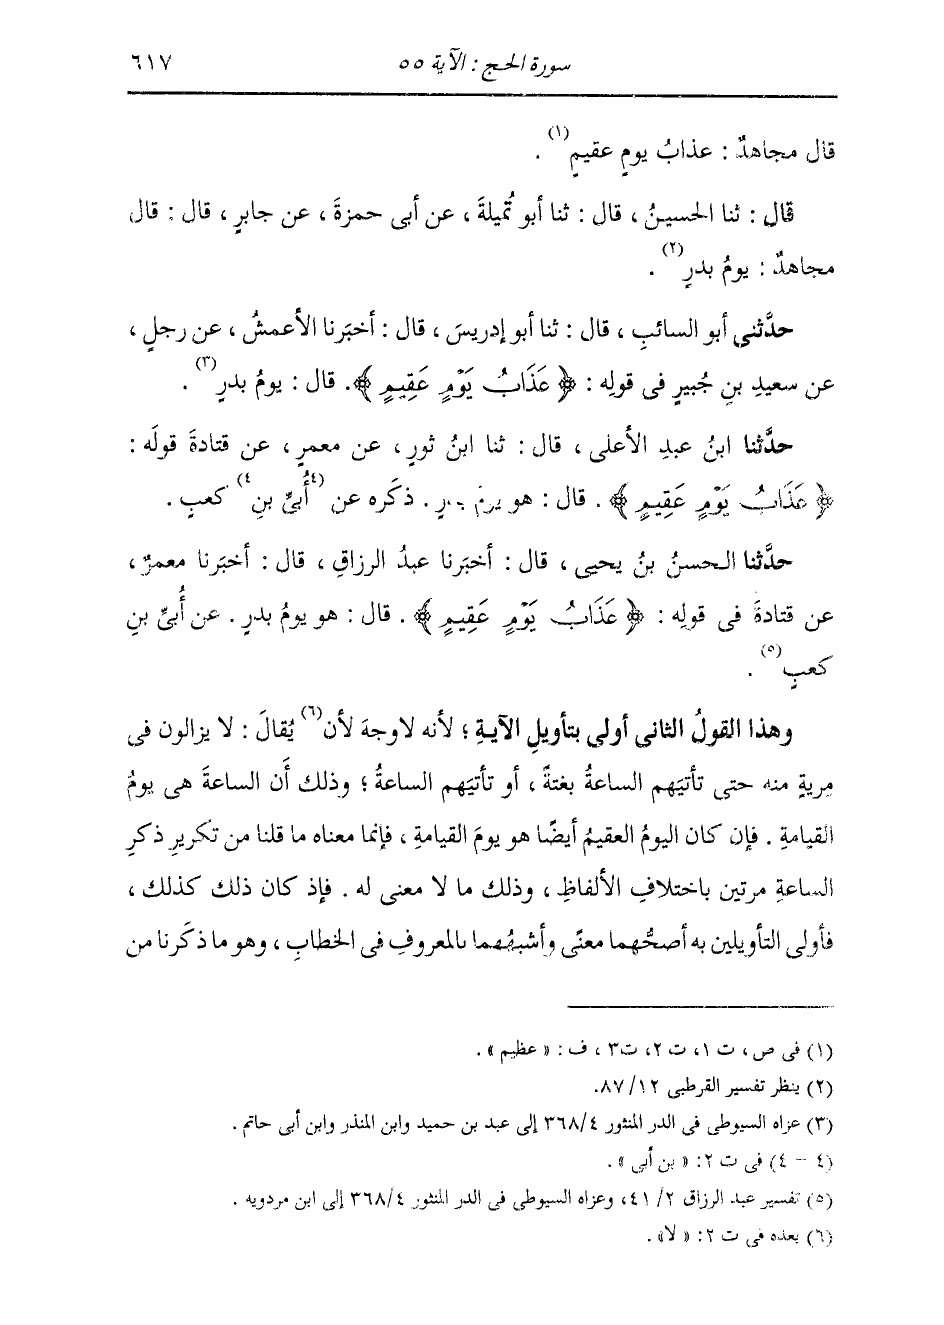 سورة الحج : الآية ٥٥ ٦١٧
قال مجاهدٌ : عذابُ يومٍ عقيمٍ(١) .
قال : ثنا الحسينُ ، قال : ثنا أبو تُميلةَ ، عن أبى حمزةَ ، عن جابرٍ ، قال : قال
مجاهدٌ : يومُ بدرٍ(٢) .
حدَّثنى أبو السائبِ ، قال : ثنا أبو إدريسَ ، قال : أخبَرنا الأعمشُ ، عن رجلٍ ،
عن سعيدِ بنِ جُبيرٍ فى قولِه : ﴿ عَذَابُ يَوْمٍ عَقِيمٍ ﴾. قال : يومُ بدرٍ(٣) .
حدَّثنا ابنُ عبدِ الأعلى ، قال : ثنا ابنُ ثورٍ ، عن معمرٍ ، عن قتادةَ قولَه :
﴿ عَذَابُ يَوْمٍ عَقِيمٍ ﴾ . قال : هو يومُ . ذكَره عن (٤أُبىِّ بنِ٤) كعبٍ .
حدَّثنا الحسنُ بنُ يحيى ، قال : أخبَرنا عبدُ الرزاقِ ، قال : أخبَرنا معمرٌ ،
عن قتادةَ فى قولِه : ﴿ عَذَابُ يَوْمٍ عَقِيمٍ ﴾ . قال : هو يومُ بدرٍ . عن أُبىِّ بنِ
كعبٍ(٥) .
وهذا القولُ الثانى أولى بتأويلِ الآيةِ ؛ لأنه لا وجهَ لأن(٦) يُقالَ : لا يزالون فى
مِريةٍ منه حتى تأتيَهم الساعةُ بغتةً ، أو تأتيَهم الساعةُ ؛ وذلك أَن الساعةَ هى يومُ
القيامةِ . فإن كان اليومُ العقيمُ أيضًا هو يومَ القيامةِ ، فإنما معناه ما قلنا من تكريرِ ذكرِ
الساعةِ مرتين باختلافِ الألفاظِ ، وذلك ما لا معنى له . فإذ كان ذلك كذلك ،
فأولى التأويلين به أصحُّهما معنًى وأشبهُهما بالمعروفِ فى الخطابِ ، وهو ما ذكَرنا من
(١) فى ص ، ت ١، ت ٢، ت٣ ، ف : « عظيم » .
(٢) ينظر تفسير القرطبى ١٢/ ٨٧.
(٣) عزاه السيوطى فى الدر المنثور ٣٦٨/٤ إلى عبد بن حميد وابن المنذر وابن أبى حاتم .
(٤ - ٤) فى ت ٢: « بن أبي » .
(٥) تفسير عبد الرزاق ٢/ ٤١، وعزاه السيوطى فى الدر المنثور ٣٦٨/٤ إلى ابن مردويه .
(٦) بعده فى ت ٢: « لا» .